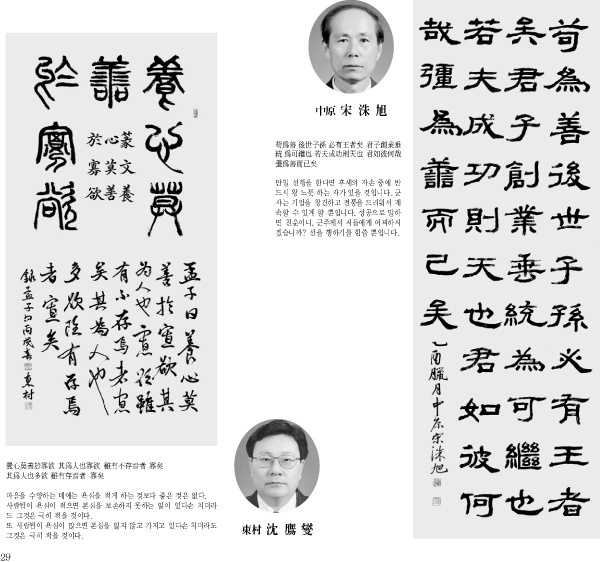 養心莫
善
於寡欲
篆文養
心莫善
於寡欲
孟子曰養心莫
善於寡欲其
為人也寡欲雖
有不存焉者寡
矣其為人也
多欲雖有存焉
者寡矣
錄孟子句丙戌春 東村
養心莫善於寡欲 其爲人也寡欲 雖有不存焉者 寡矣
其爲人也多欲 雖有存焉者 寡矣
마음을 수양하는 데에는 욕심을 적게 하는 것보다 좋은 것은 없다.
사람됨이 욕심이 적으면 본심을 보존하지 못하는 일이 있다손 치더라
도 그것은 극히 적을 것이다.
또 사람됨이 욕심이 많으면 본심을 잃지 않고 가지고 있다손 치더라도
그것은 극히 적을 것이다.
中原 宋 洙 旭
苟爲善 後世子孫 必有王者矣 君子創業垂
統 爲可繼也 若夫成功則天也 君如彼何哉
彊爲善而已矣
만일 선행을 한다면 후세의 자손 중에 반
드시 왕 노릇 하는 자가 있을 것입니다. 군
자는 기업을 창건하고 전통을 드리워서 계
속할 수 있게 할 뿐입니다. 성공으로 말하
면 천운이니, 군주께서 저들에게 어찌하시
겠습니까? 선을 행하기를 힘쓸 뿐입니다.
東村 沈 鷹 燮
苟為善後世子孫必有王者
矣君子創業垂統為可繼也
若夫成功則天也君如彼何
哉彊為善而已矣
乙酉臘月中原宋洙旭
29